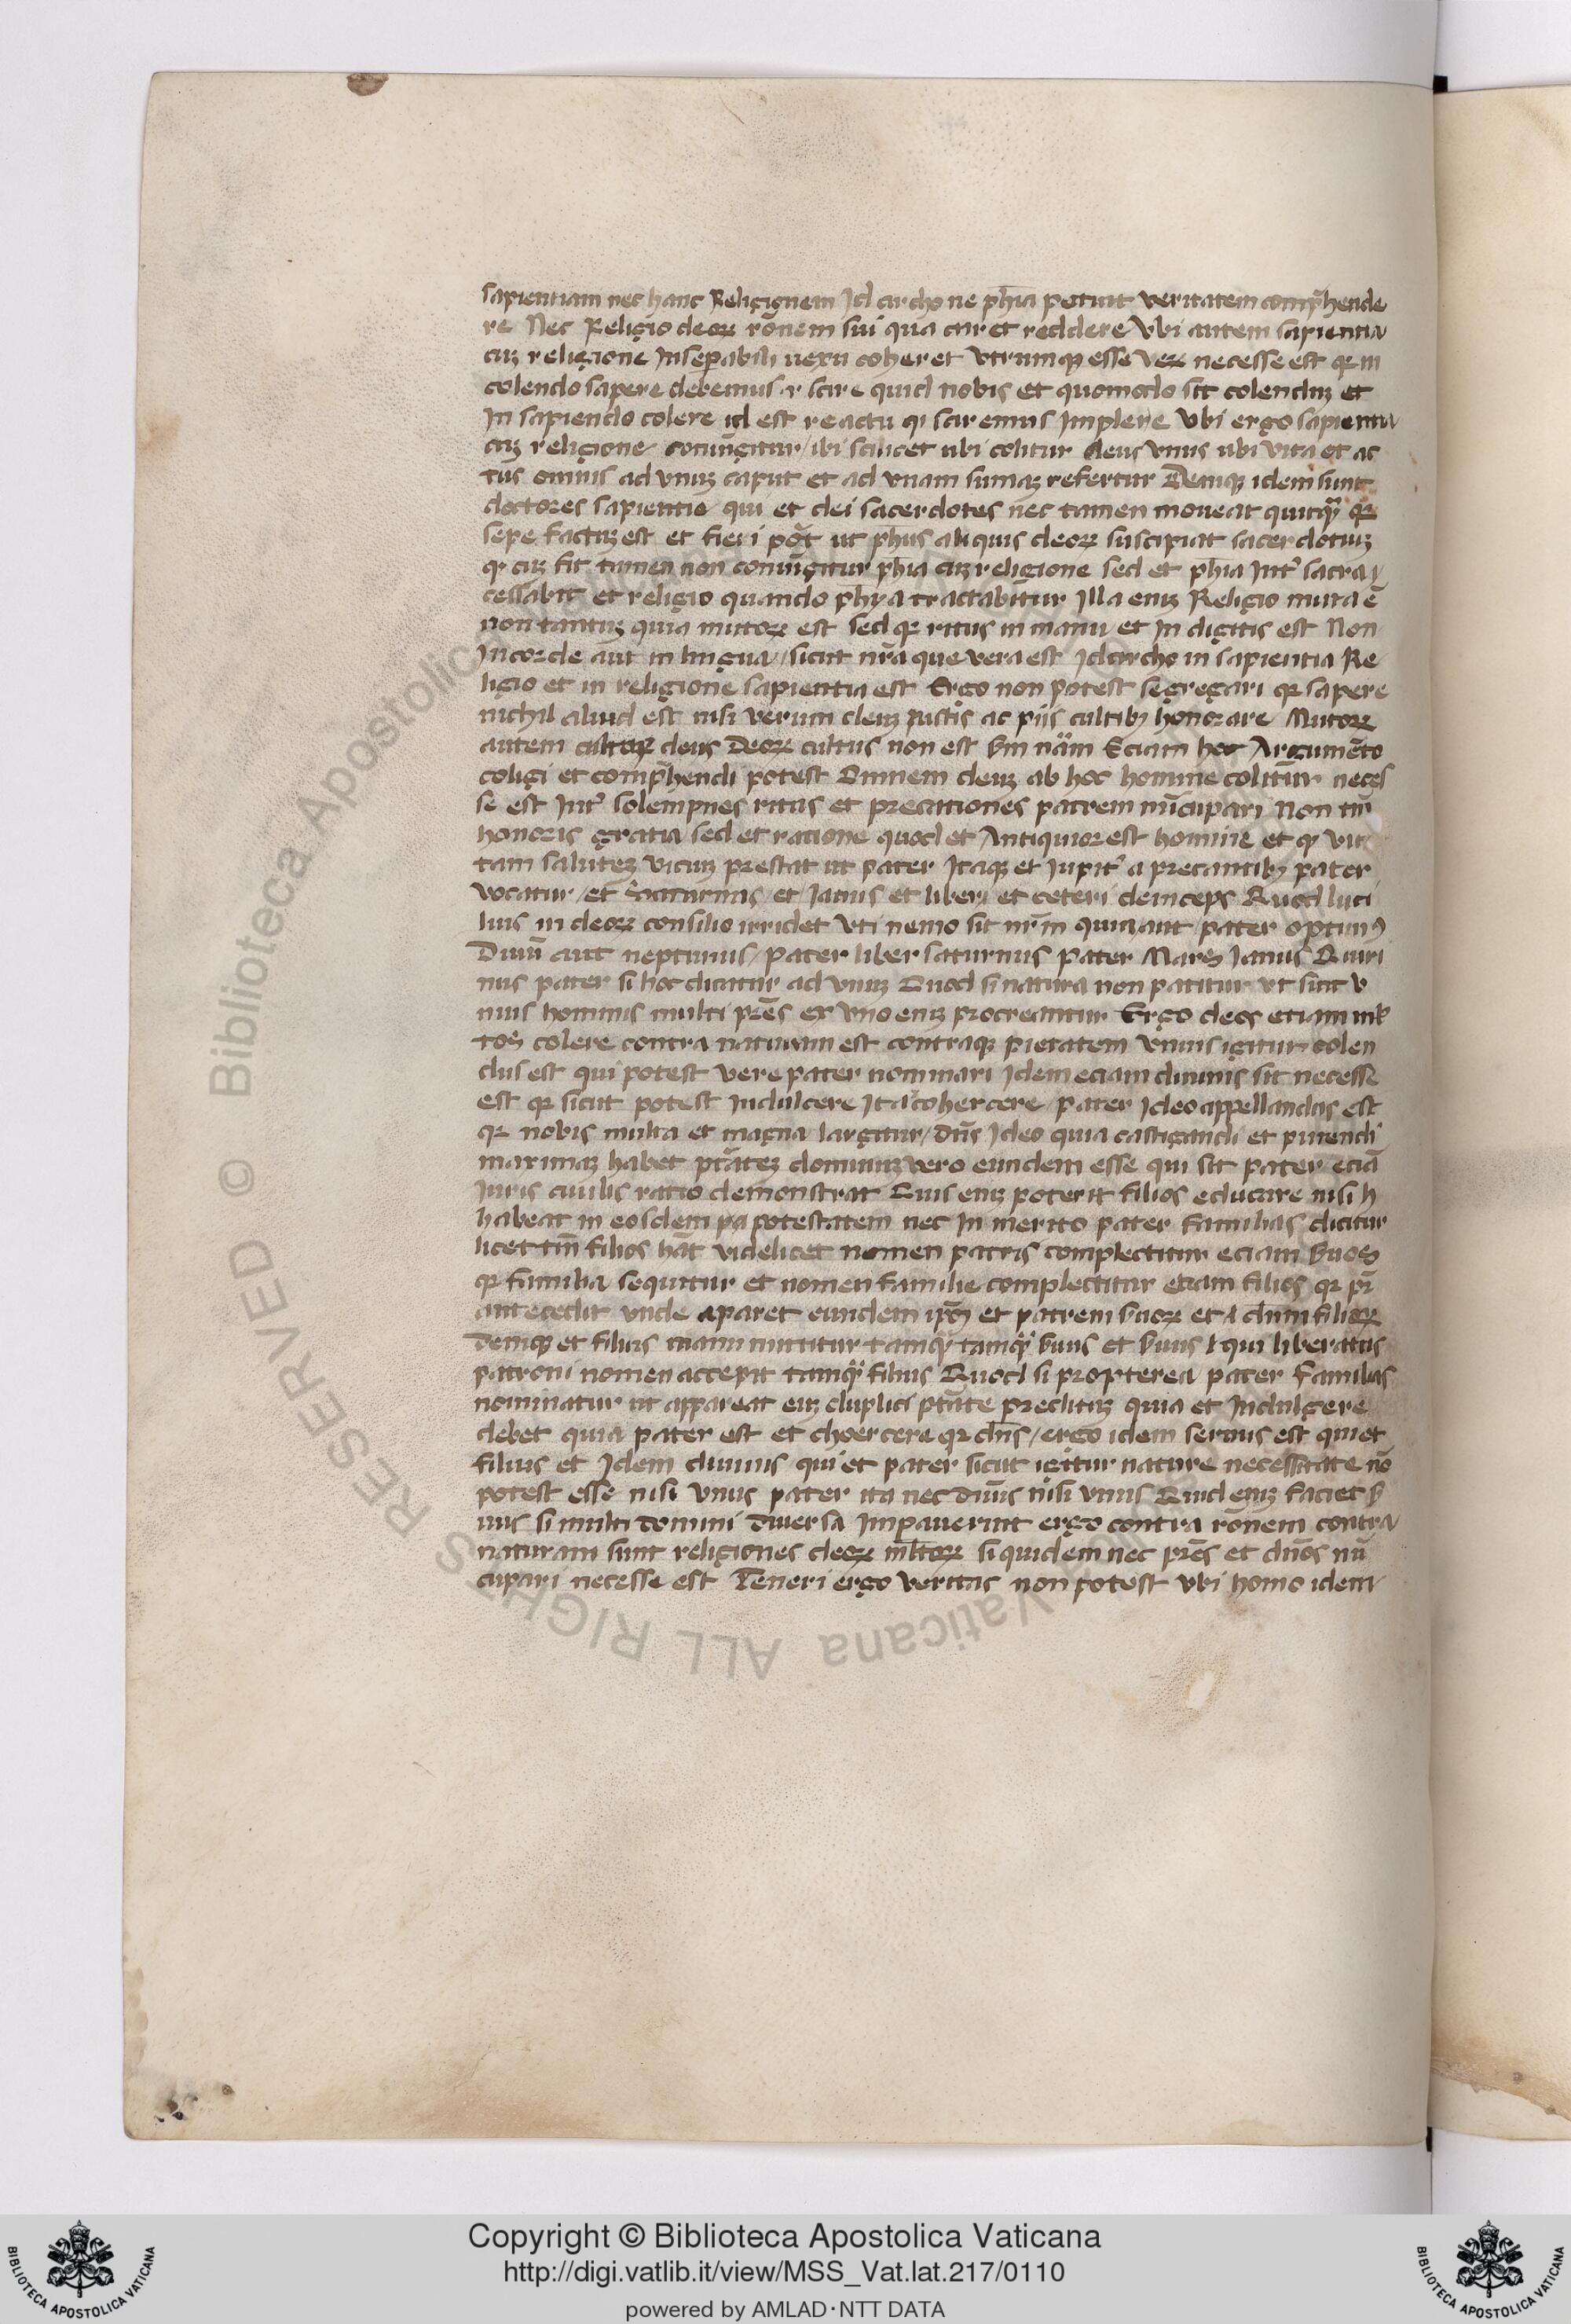 sapientiam nec hanc Religignem Id circho ne ph̄ia potuit veritatem compͬhende
re Nec Religio deoꝝ rōnem sui qua caret reddere Vbi autem sapientia
cuꝫ religione Inseꝑabili nexu coheret vtrumqꝫ esse veꝝ necesse est qꝛ in
colendo sapere debemus ⁊ scire quid nobis et quomodo sit colenduꝫ et
In sapiendo colere id est re actu qͥ sciremus Implere Vbi ergo sapientia
cuꝫ religione coniūgitur / ibi scilicet ubi colitur deus vnus ubi vita et ac
tus omnis ad vnuꝫ caput et ad vnam sumaꝫ refertur Deniqꝫ idem sunt
doctores sapientie qui et dei sacerdotes nec tamen moveat quicqͣ qꝛ
sepe factuꝫ est et fieri pōt ut ph̄us aliquis deoꝝ suscipiat sacerdotiuꝫ
qͥ cuꝫ fit tamen non coniūgitur ph̄ia cuꝫ religione sed et phia Intͬ sacra
cessabit et religio quando phya tractabitur Illa eniꝫ Religio muta ē
non tantuꝫ quia mutoꝝ est sed qꝛ ritus in manu et In digitis est Non
In corde aut in lingua / sicut nr̄a que vera est Idcircho in sapientia Re
ligio et in religione sapientia est Ergo non potest segregari qꝛ sapere
nichil aliud est nisi verum deuꝫ iustis ac piis cultibꝫ honorare Mutoꝝ
autem cultoꝝ deus Deoꝝ cultus non est ẜm nām Eciam hoc Argumēto
coligi et compͬhendi potest Omnem deuꝫ ab hoc homine colitur neces
se est Intͬ solempnes ritus et precationes patrem nūcupari Non tm̄
honoris gratia sed et racione quod et Antiquior est homine et qꝫ vi
tam saluteꝫ victuꝫ prestat ut pater Itaqꝫ et Iupitͬ a precantibꝫ pater
vocatur / et Saturnus / et Ianus et liber et ceteri deinceps Quod luci
lius in deoꝝ consilio irridet Vti nemo sit nr̄m quin aut pater optimꝰ
Diuū aut neptunus / pater liber saturnus pater Mars Ianus Quiri
nus pater si hoc dicatur ad vnuꝫ Quod si natura non patitur vt sint v
nius hominis multi pr̄es ex vno eniꝫ procreantur Ergo deos etiam ml̄
tos colere contra naturam est contraqꝫ pietatem vnus igitur colen
dus est qui potest vere pater nominari Idem eciam dnnus sit necesse
est qꝛ sicut potest Indulcere Ita cohercere pater Ideo appellandus est
qꝛ nobis multa et magna largitur / dn̄s Ideo quia castigandi et puniendi
maximaꝫ habet ptāteꝫ dominuꝫ vero eundem esse qui sit pater eciā
Iuris ciuilis ratio demonstrat Quis eniꝫ poterit filios educare nisi h
habeat in eosdem pa potestatem nec In merito pater familias dicitur
licet tm̄ filios hāt videlicet nomen patris complectitur eciam ẜuos
qꝛ familia sequitur et nomen familie complectitur eciam filios qꝛ pr̄
antecedit vnde aparet eundem ip̄m et patrem ẜuoꝝ et dnm filioꝝ
Deniqꝫ et filius manu mittitur tamqͣ tamqͣ ẜuus et ẜuus qui liberatus
patroni nomen accepit tamqͣ filius Quod si propterea pater familias
nominatur ut appareat euꝫ duplici ptāte preditum quia et Indulgere
debet quia pater est et choercere qꝛ dn̄s / ergo idem seruus est qui et
filius et Idem dnnus qui et pater sicut igitur nature necessitate nō
potest esse nisi vnus pater ita nec dnūs nisi vnus Quid eniꝫ faciet ẜ
uus si multi domini diuersa Impauerint ergo contra rōnem contra
naturam sunt religiones deoꝝ ml̄toꝝ si quidem nec pr̄es et dn̄os nū
cupari necesse est Teneri ergo veritas non potest vbi homo idem
Copyright © Biblioteca Apostolica Vaticana
http://digi.vatlib.it/view/MSS_Vat.lat.217/0110
powered by AMLAD·NTT DATA
© Biblioteca Apostolica Vaticana ALL RIGHTS RESERVED
BIBLIOTECA APOSTOLICA VATICANA
BIBLIOTECA APOSTOLICA VATICANA